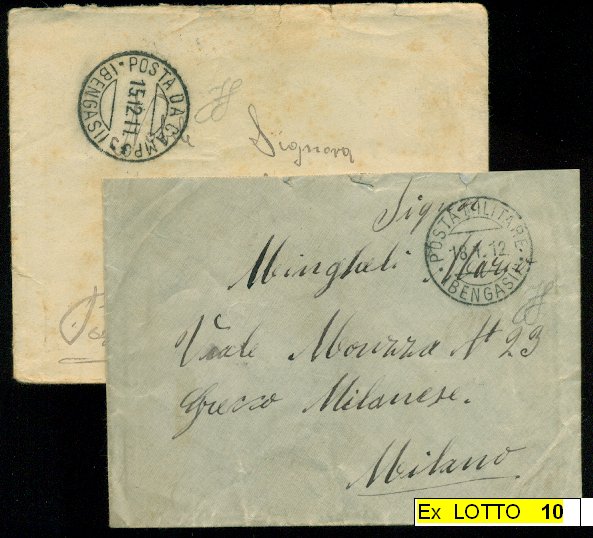 POSTA DA CAMPO
15.12.11.
(BENGASI)
Signora
Signora
POSTA MILITARE
18.1.12
(BENGASI)
Mingheli Maria
Viale Monza N° 23
Greco Milanese.
Milano
Ex LOTTO 10